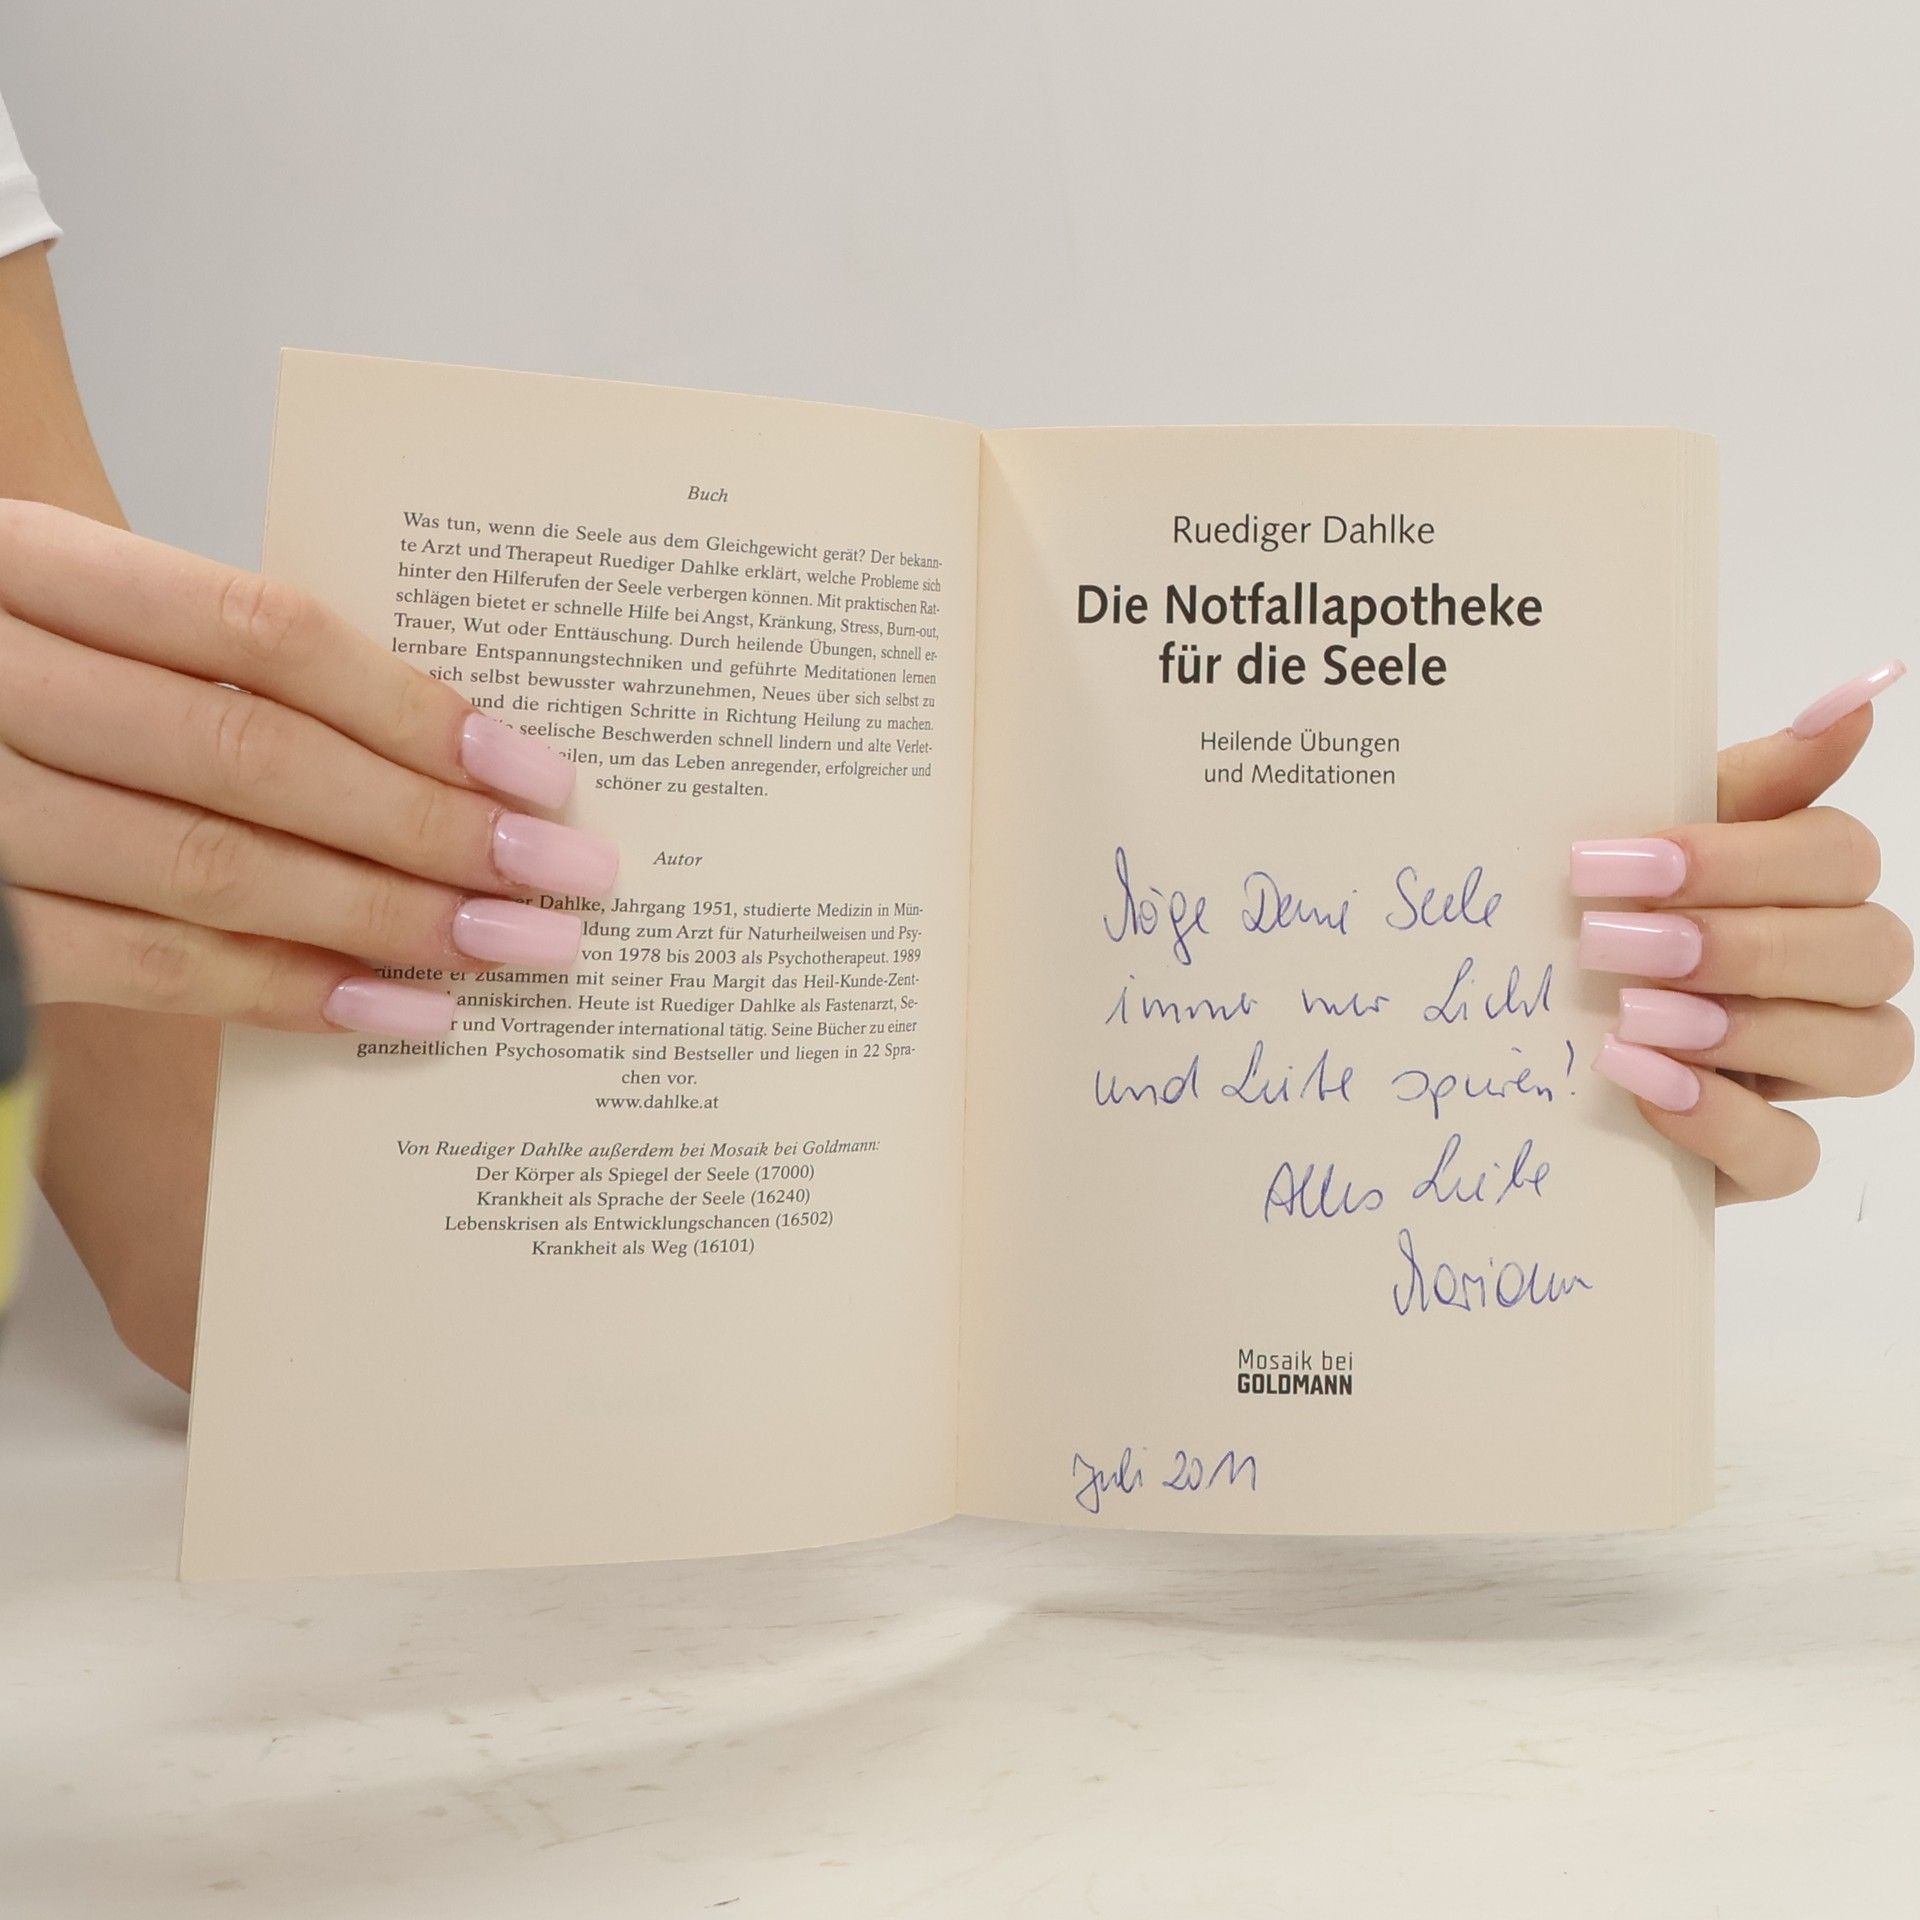 Buch
Was tun, wenn die Seele aus dem Gleichgewicht gerät? Der bekann-
te Arzt und Therapeut Ruediger Dahlke erklärt, welche Probleme sich
hinter den Hilferufen der Seele verbergen können. Mit praktischen Rat-
schlägen bietet er schnelle Hilfe bei Angst, Kränkung, Stress, Burn-out,
Trauer, Wut oder Enttäuschung. Durch heilende Übungen, schnell er-
lernbare Entspannungstechniken und geführte Meditationen lernen
sich selbst bewusster wahrzunehmen, Neues über sich selbst zu
und die richtigen Schritte in Richtung Heilung zu machen.
seelische Beschwerden schnell lindern und alte Verlet-
eilen, um das Leben anregender, erfolgreicher und
schöner zu gestalten.
Autor
er Dahlke, Jahrgang 1951, studierte Medizin in Mün-
ldung zum Arzt für Naturheilweisen und Psy-
von 1978 bis 2003 als Psychotherapeut. 1989
ründete er zusammen mit seiner Frau Margit das Heil-Kunde-Zent-
anniskirchen. Heute ist Ruediger Dahlke als Fastenarzt, Se-
r und Vortragender international tätig. Seine Bücher zu einer
ganzheitlichen Psychosomatik sind Bestseller und liegen in 22 Spra-
chen vor.
www.dahlke.at
Von Ruediger Dahlke außerdem bei Mosaik bei Goldmann:
Der Körper als Spiegel der Seele (17000)
Krankheit als Sprache der Seele (16240)
Lebenskrisen als Entwicklungschancen (16502)
Krankheit als Weg (16101)
Ruediger Dahlke
Die Notfallapotheke
für die Seele
Heilende Übungen
und Meditationen
Möge Deine Seele
immer mer Licht
und Liebe spüren!
Alles Liebe
Mosaik bei
GOLDMANN
Juli 2011